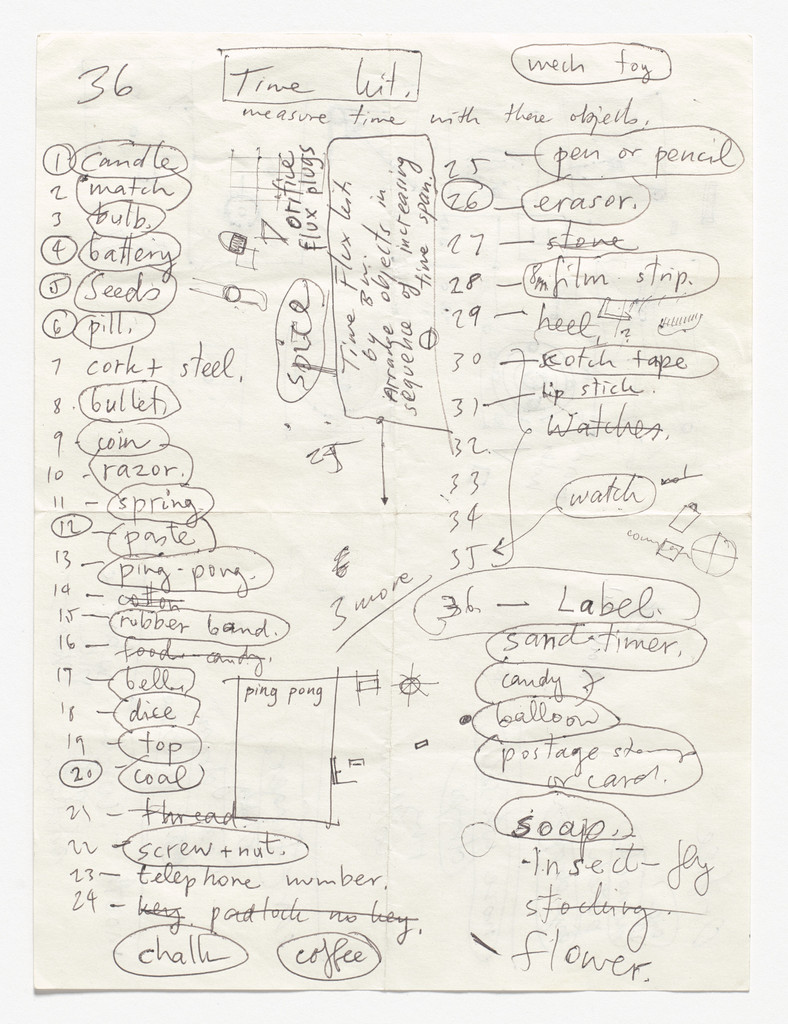 36
Time kit.
mech toy
measure time with these objects.
1 candle
2 match
3 bulb.
4 battery
5 Seeds
6 pill.
7 cork + steel.
8. bullet.
9 - coin
10 - razor.
11 - spring
12 - paste
13 - ping-pong.
14 - cotton
15 - rubber band.
16 - food - candy.
17 - bell,
18 - dice
19 - top
20 - coal
21 - thread.
22 - screw + nut.
23 - telephone number.
24 - key. padlock no key.
chalk
coffee
orifice
flux plugs
spice
Time Flux kit.
by BW.
Arrange objects in
sequence of increasing
time span.
25
3 more
ping pong
25 - pen or pencil
26 - erasor.
27 - stone
28 - 8m film strip.
29 - heel,
30 - scotch tape
31 - lip stick.
Watches.
32.
33
34
35
watch
36 - Label.
sand-timer.
candy
balloon
postage stamp
or card.
soap.
-Insect-fly
stocking.
flower.